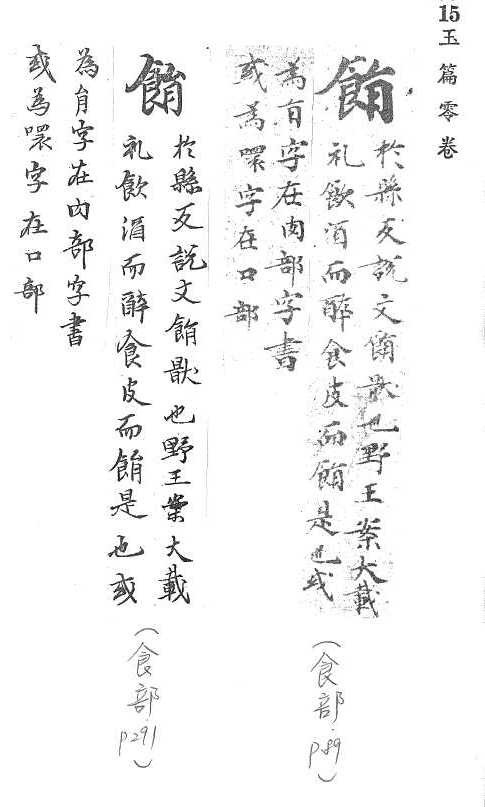 15玉篇零卷
䬼
於縣反說文䬼猒也野王案大載
礼飲酒而醉食皮而䬼是也或
為肙字在肉部字書
或為噮字在口部
(食部 p.89)
䬼
於縣反說文䬼猒也野王案大載
礼飲酒而醉食皮而䬼是也或
為肙字在肉部字書
或為噮字在口部
(食部 p291)